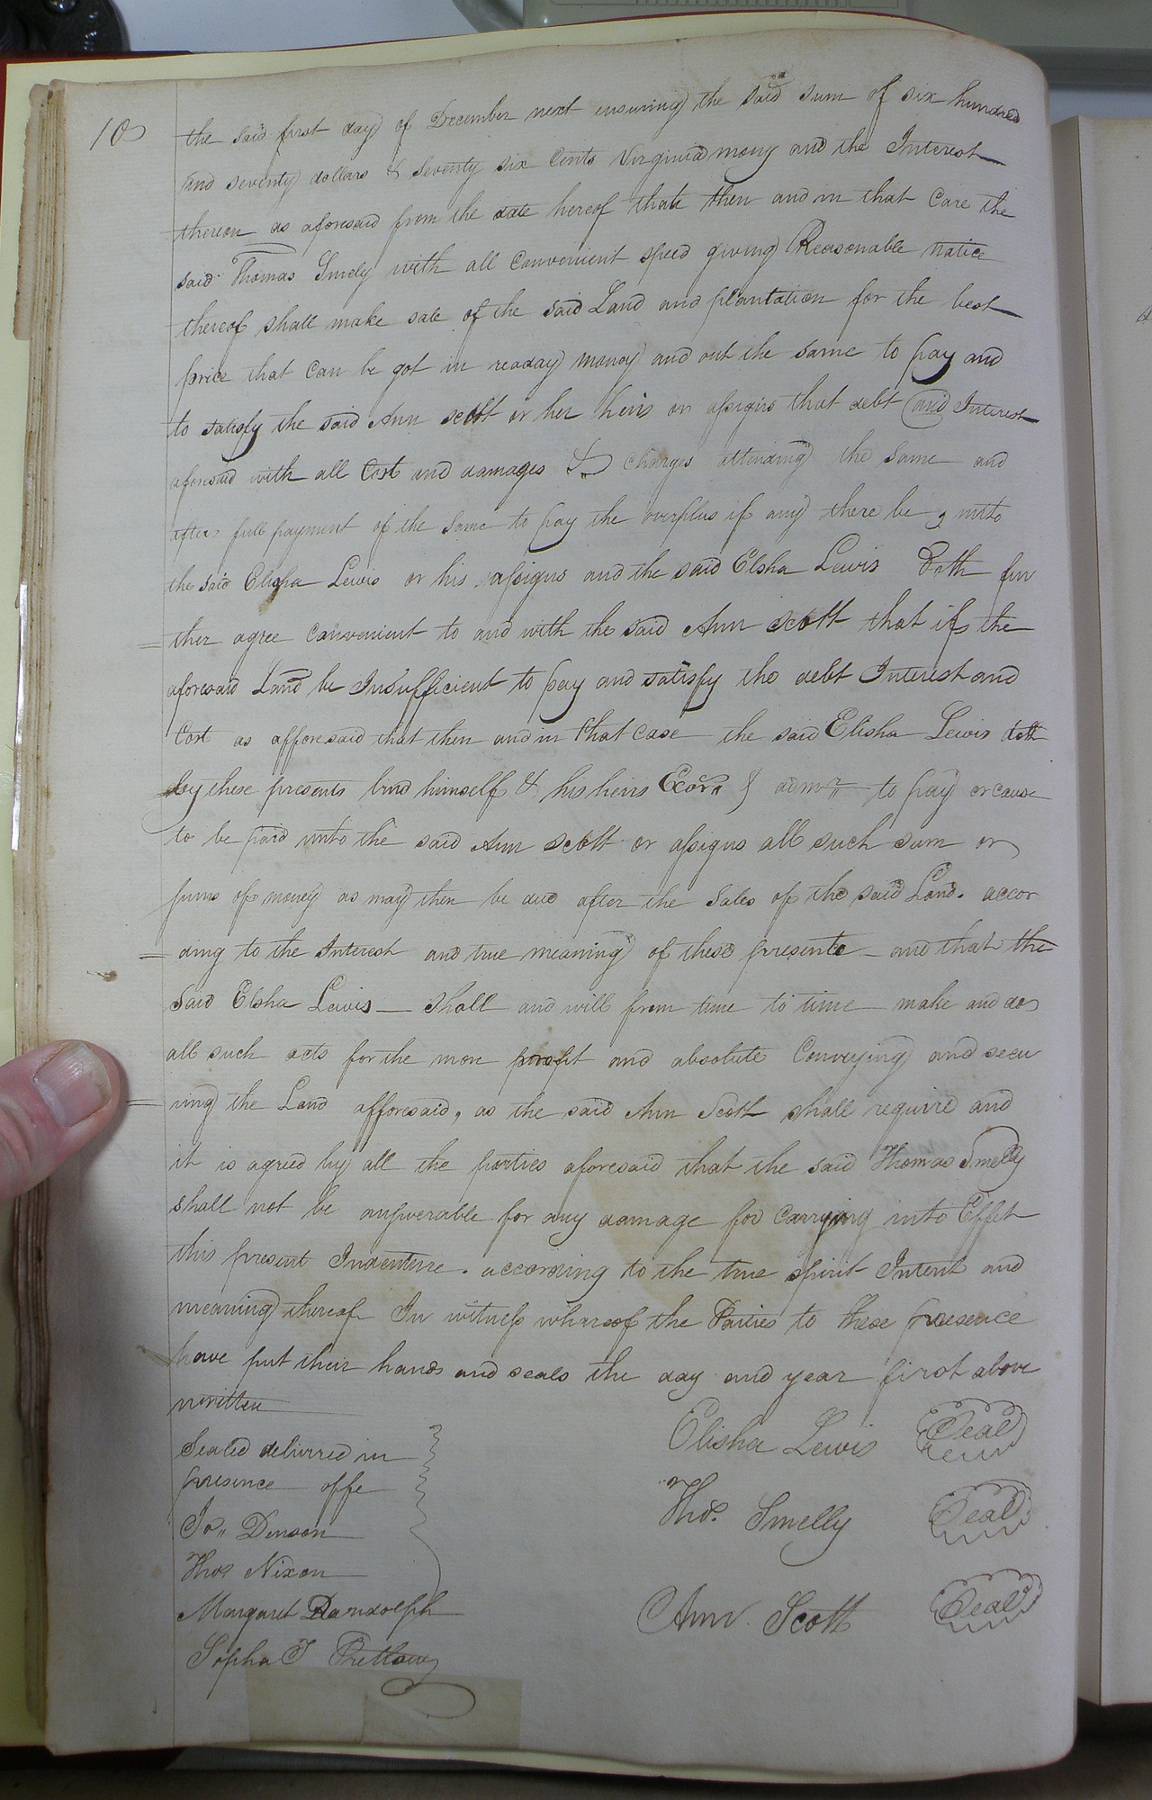 10
the said first day of December next ensuing the said sum of six hundred
and seventy dollars & seventy six Cents Virginia mony and the Interest
thereon as aforesaid from the date hereof that then and in that Care the
said Thomas Smely with all Convenient speed giving Reasonable notice
thereof shall make sale of the said Land and plantation for the best
price that can be got in readay monay and out the same to pay and
to satisfy the said Ann Scott or her heirs or assigns that debt and Interest
aforesaid with all Cost and damages & charges attending the same and
after full payment of the same to pay the overplus if any there be, unto
the said Elisha Lewis or his assigns and the said Elsha Lewis Doth fur
= ther agree Convenient to and with the said Ann Scott that if the
aforesaid Land be Insufficient to pay and satisfy the debt Interest and
Cost as afforesaid that then and in that case the said Elisha Lewis doth
by these presents bind himself & his heirs Exors & admrs to pay or cause
to be paid unto the said Ann Scott or assigns all such sum or
sums of money as may then be due after the Sales of the said Land. accor
= ding to the Interest and true meaning of these presents and that the
Said Elsha Lewis — Shall and will from time to time make and do
all such acts for the more profit and absolute Conveying and secu
= ring the Land afforesaid, as the said Ann Scott shall require and
it is agreed by all the parties aforesaid that the said Thomas Smelly
shall not be answerable for any damage for Carrying into Effect
this present Indenture. according to the true spirit Intent and
meaning thereof In witness whareof the Parties to these presence
have put their hands and seals the day and year first above
written
Sealed delivered in
presence offe
Jo,, Denson
Thos Nixon
Margaret Randolph
Sopha T Pretlow
Elisha Lewis Seal
Thos. Smelly Seal
Ann. Scott Seal